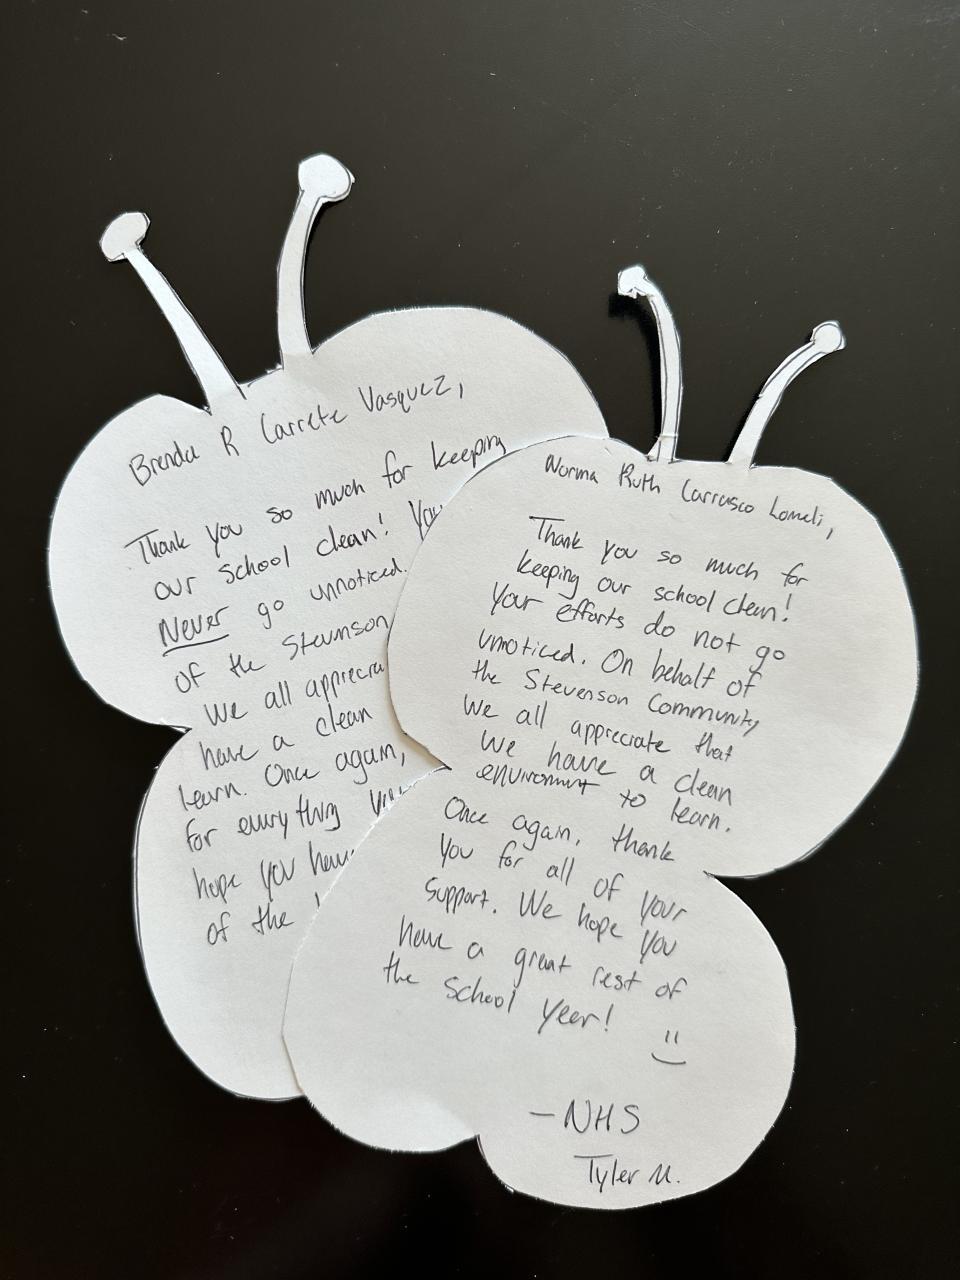 Brenda R Carrete Vasquez,
Thank you so much for keeping
our school clean! You
Never go unnoticed.
of the Stevenson
We all apprecia
have a clean
learn. Once again,
for everything
hope you have
of the
Norma Ruth Carrasco Lomeli,
Thank you so much for
keeping our school clean!
Your efforts do not go
unnoticed. On behalf of
the Stevenson Community
We all appreciate that
We have a clean
environment to learn.
Once again, thank
you for all of your
support. We hope you
have a great rest of
the school year!
–NHS
Tyler M.